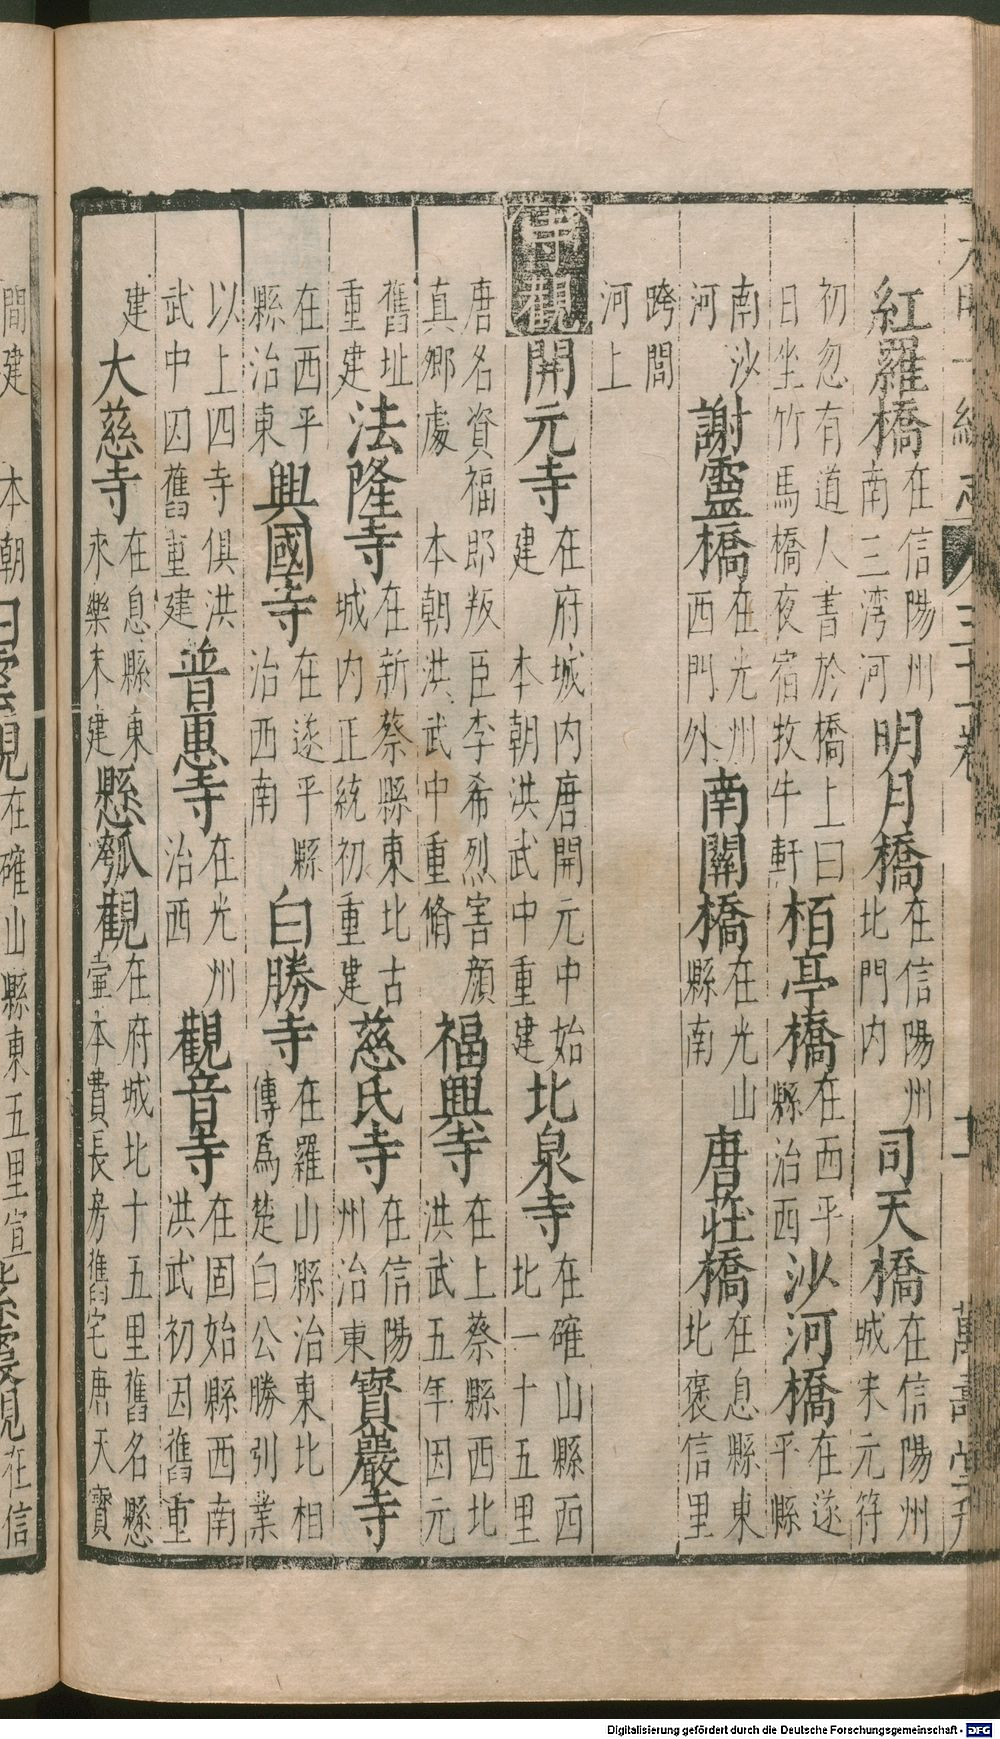 大明一統志 三十一卷 十一 萬壽堂刋
紅羅橋在信陽州南三湾河 明月橋在信陽州北門内 司天橋在信陽州城末元符
初忽有道人書於橋上曰日坐竹馬橋夜宿牧牛軒 栢亭橋在西平縣治西 沙河橋在遂平縣
南沙河 謝靈橋在光州西門外 南關橋在光山縣南 唐莊橋在息縣東北褒信里
跨閭河上
寺觀 開元寺在府城内唐開元中始建 本朝洪武中重建 北泉寺在確山縣西北一十五里
唐名資福郎叛臣李希烈害顔真鄉處 本朝洪武中重脩 福興寺在上蔡縣西北洪武五年因元
舊址重建 法隆寺在新蔡縣東北古城内正統初重建 慈氏寺在信陽州治東 寳巖寺
在西平縣治東 興國寺在遂平縣治西南 白勝寺在羅山縣治東北相傳爲楚白公勝引業
以上四寺俱洪武中因舊重建 普惠寺在光州治西 觀音寺在固始縣西南洪武初因舊重
建 大慈寺在息縣東永樂末建 懸瓠觀在府城北十五里舊名懸壷本費長房舊宅唐天寳
間建 本朝 白雲觀在確山縣東五里宣 紫霞觀在信
Digitalisierung gefördert durch die Deutsche Forschungsgemeinschaft - DFG